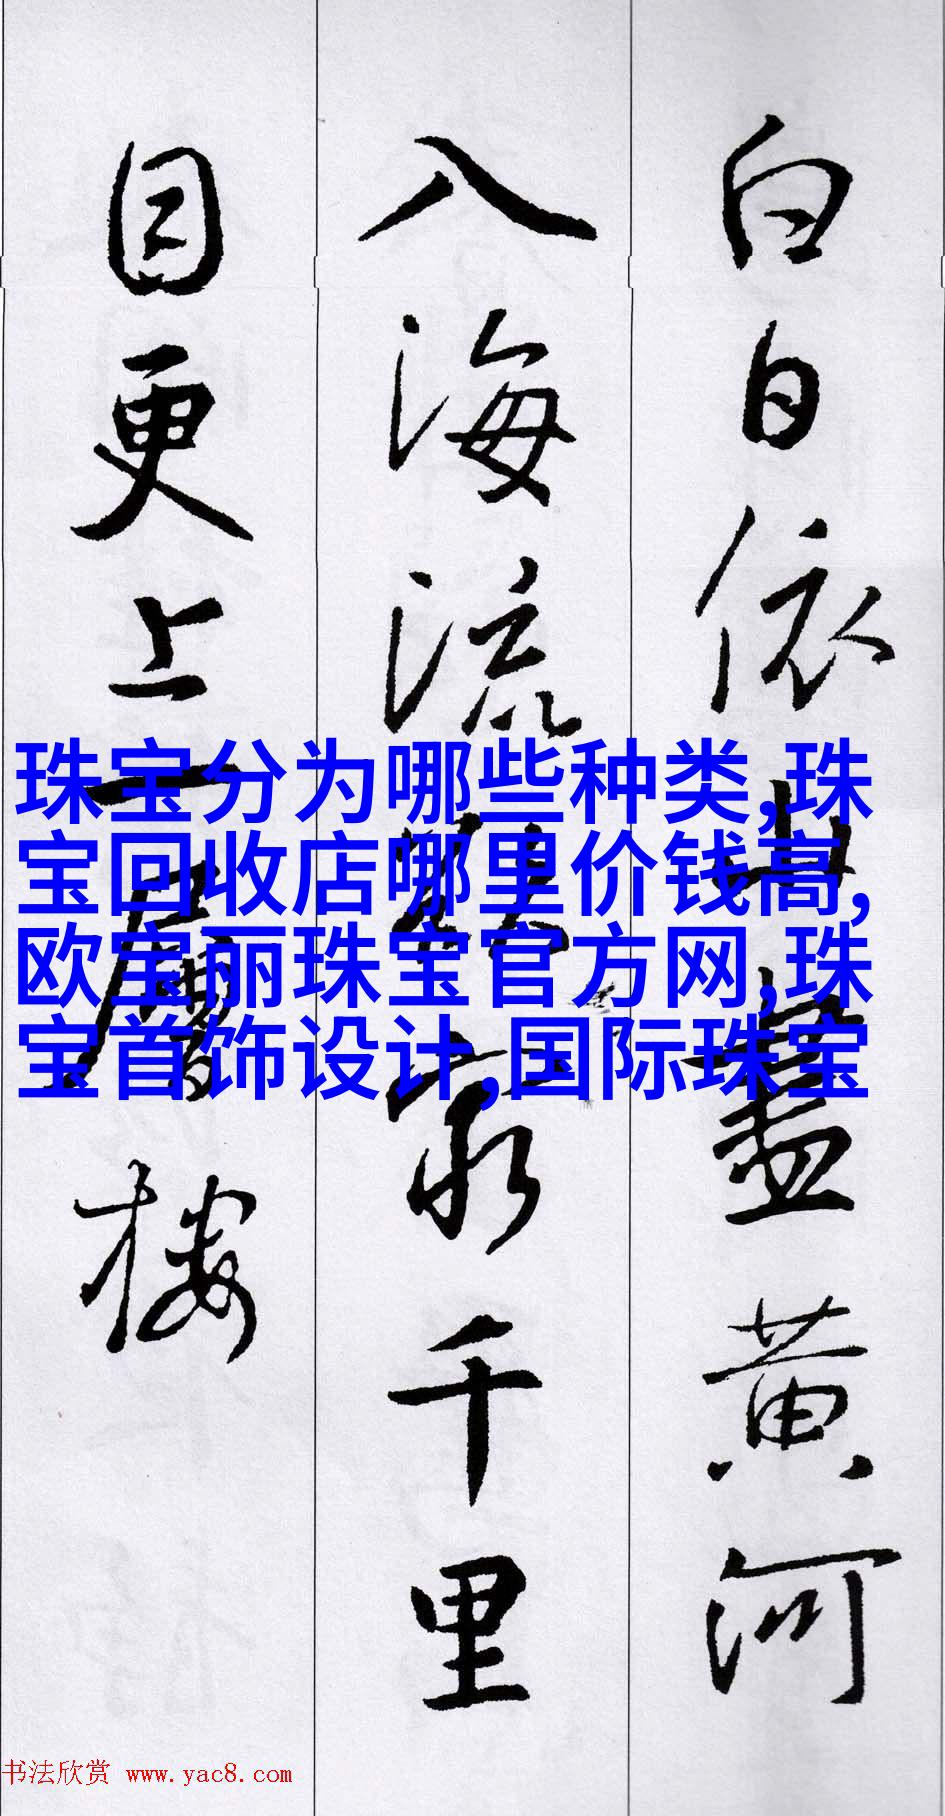 白日依山盡黄河
入海流欲穷千里
目更上一層楼
珠宝分为哪些种类,珠
宝回收店哪里价钱高,
欧宝丽珠宝官方网,珠
宝首饰设计,国际珠宝
书法欣赏 www.yac8.com